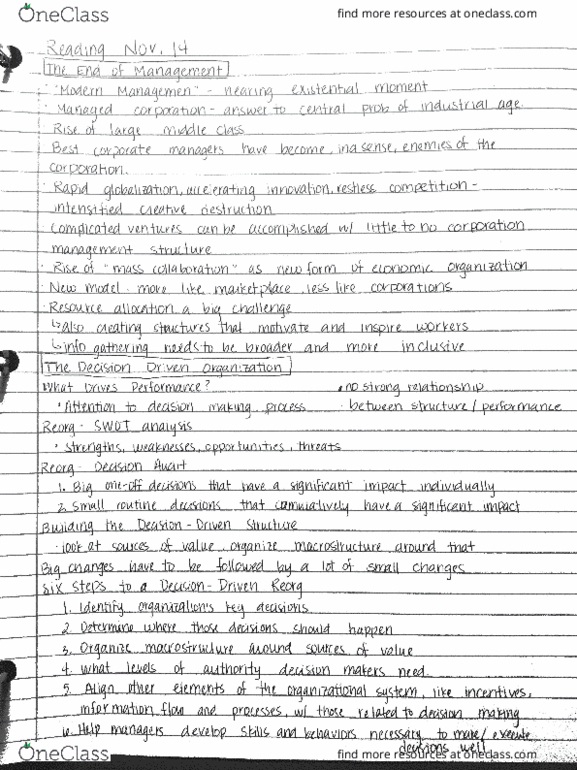 OneClass
find more resources at oneclass.com
Reading Nov. 14
The End of Management
· "Modern Managemen" - nearing existential moment
· Managed corporation - answer to central prob of industrial age
Rise of large middle class
Best corporate managers have become, in a sense, enemies of the
corporation.
· Rapid globalization, accelerating innovation, restless competition -
intensified creative destruction
· Complicated ventures can be accomplished w/ little to no corporation
management structure
· Rise of "mass collaboration" as new form of economic organization
· New model - more like marketplace, less like corporations
· Resource allocation a big challenge
↳ also creating structures that motivate and inspire workers
↳ info gathering needs to be broader and more inclusive
The Decision Driven Organization
What Drives Performance? · no strong relationship
· Attention to decision making process · between structure / performance
Reorg - SWOT analysis
· strengths, weaknesses, opportunities, threats
Reorg - Decision Audit
1. Big one-off decisions that have a significant impact individually
2. Small routine decisions that cumulatively have a significant impact
Building the Decision - Driven Structure
· look at sources of value, organize macrostructure around that
Big changes have to be followed by a lot of small changes
Six Steps to a Decision - Driven Reorg
1. Identify organization's key decisions
2. Determine where those decisions should happen
3. Organize macrostructure around sources of value
4. What levels of authority decision makers need
5. Align other elements of the organizational system, like incentives,
information, flow and processes, w/ those related to decision making
6. Help managers develop skills and behaviors necessary to make / execute
decisions well
OneClass
find more resources at oneclass.com